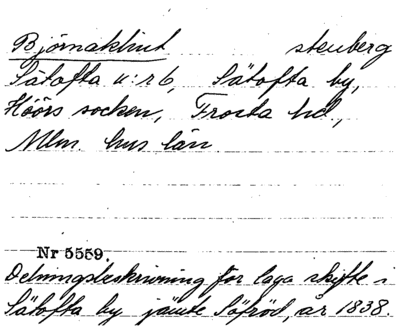 Björnaklint stenberg
Sätofta n:r 6, Sätofta by,
Höörs socken, Frosta hd.,
Mlm. hus län.
Nr 5559.
Delningsbeskrivning för laga skifte i
Sätofta by jämte Säfröd, år 1838.